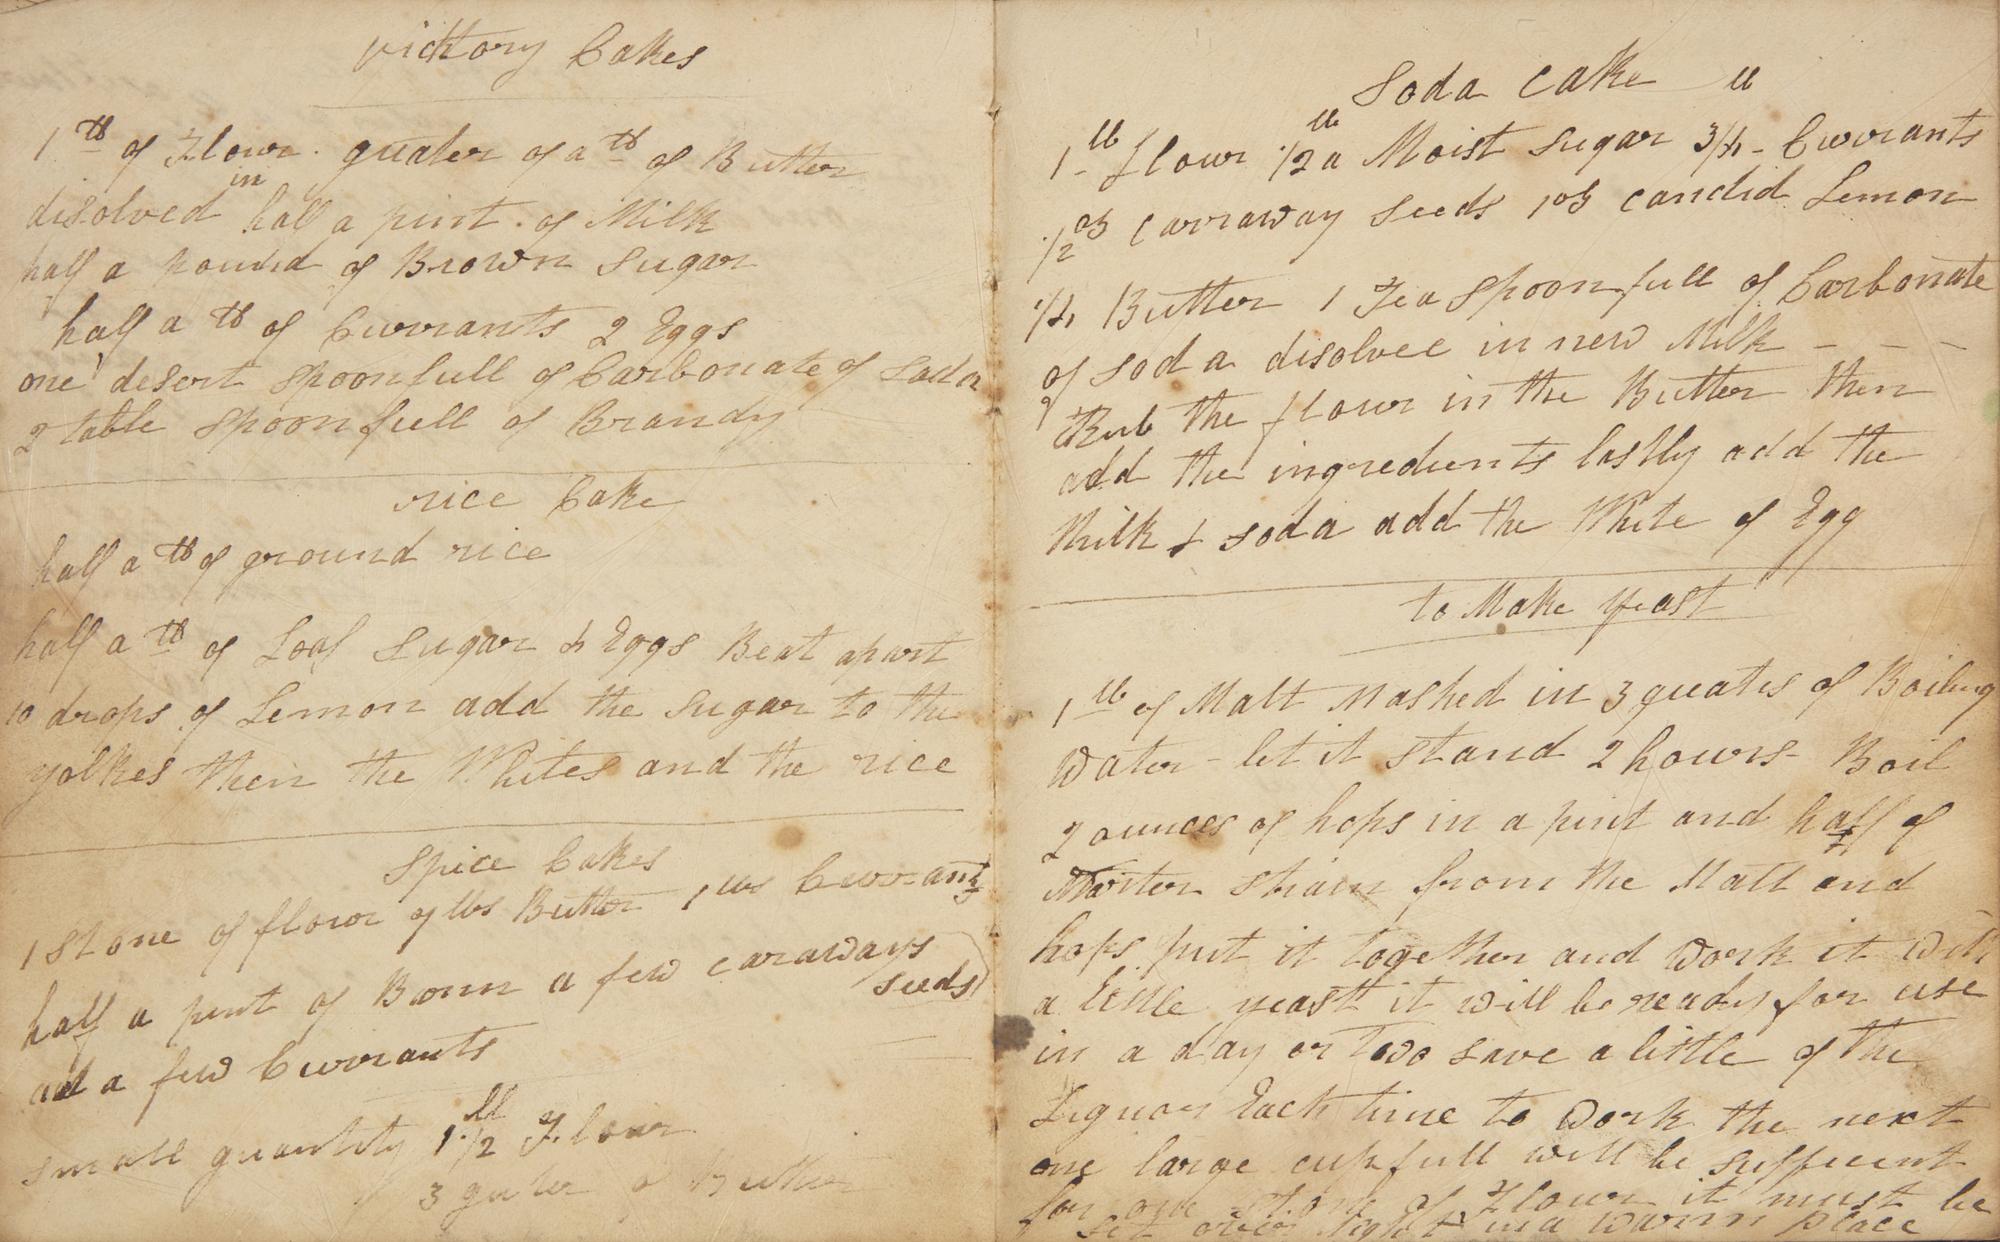 vicktory Cakes
1 lb of Flour. quater of a lb of Butter
disolved in half a pint. of Milk
half a pound of Brown Sugar
half a lb of Currants 2 Eggs
one desert spoonfull of Carbonate of Soda
2 table spoonfull of Brandy
rice Cake
half a lb of ground rice
half a lb of Loaf Sugar 4 Eggs Beat apart
10 drops of Lemon add the sugar to the
yolkes then the Whites and the rice
Spice Cakes
1 stone of flour lbs Butter 1 lbs Currants
half a pint of a few caraways
seeds
a few Currants
small quantity 1 1/2 lb Flour
3 Butter
Soda Cake
1 lb flour 1/2 a lb Moist sugar 3/4 lb Currants
1/2 oz carraway seeds 1 oz candid Lemon
1/4 Butter 1 Tea spoonfull of Carbonate
of soda disolvee in new Milk - - -
Rub the flour in the Butter then
add the ingredients lastly add the
Milk & soda add the White of Egg
to Make yeast
1 lb of Malt Mashed in 3 quates of Boiling
Water - let it stand 2 hours - Boil
2 ounces of hops in a pint and half of
Warter strain from the Malt and
hops put it together and work it with
a little yeast it will be ready for use
in a day or two save a little of the
Liquor Each time to work the next
one large cupfull will be sufficent
for one stone of Flour it must be
set over night in a warm place